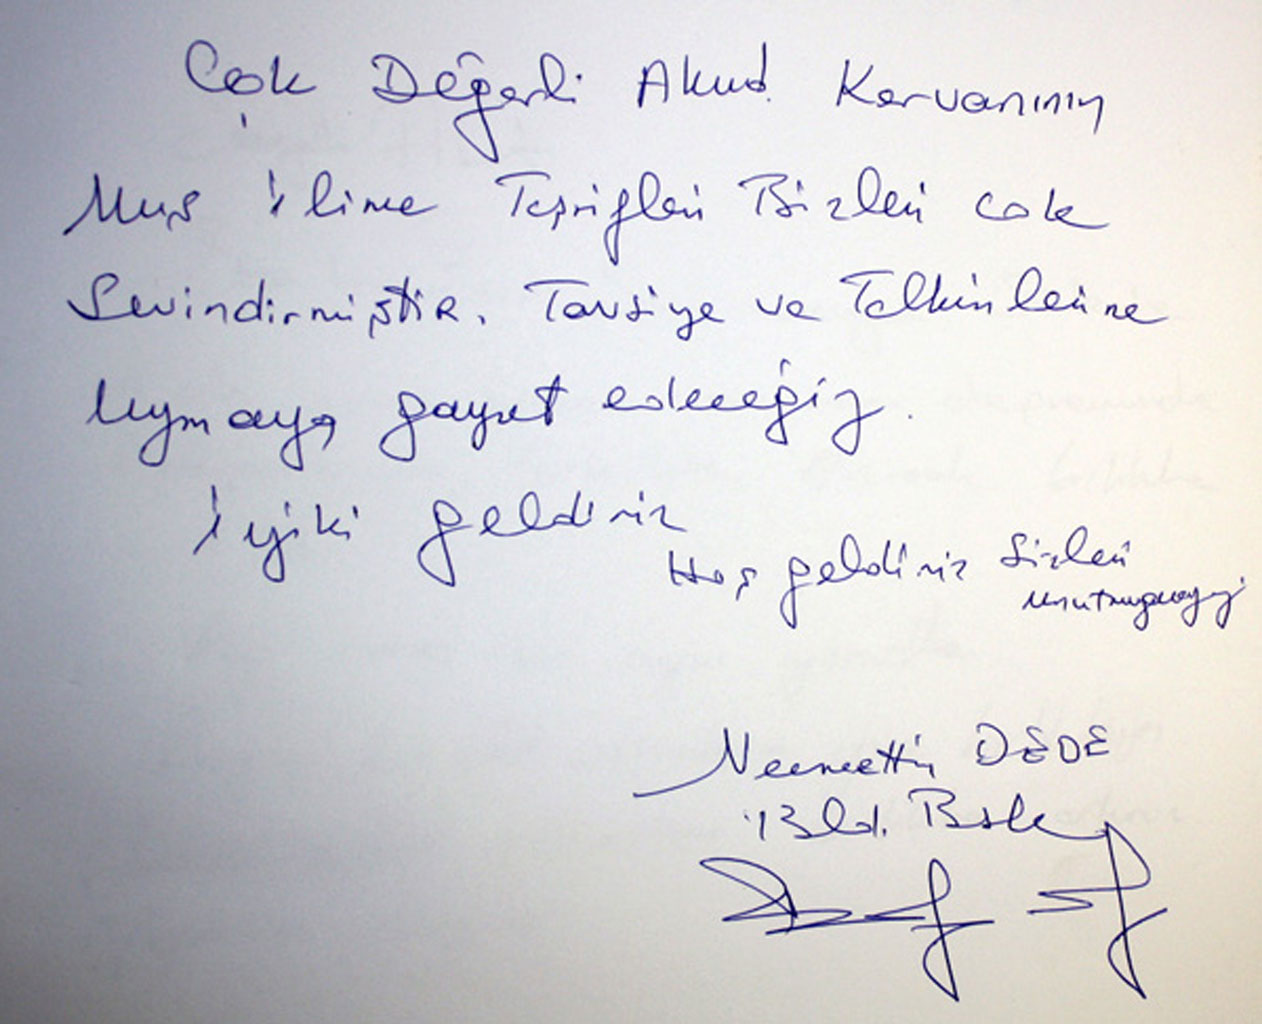 Çok Değerli Akud Kervanının
Muş İline Teşrifleri Bizleri cok
Sevindirmiştir. Tavsiye ve Telkinlerine
Uymaya gayret edeceğiz.
İyiki geldiniz
Hoş geldiniz Sizleri
unutmayacağız
Necmettin DEDE
Bld. Bşk